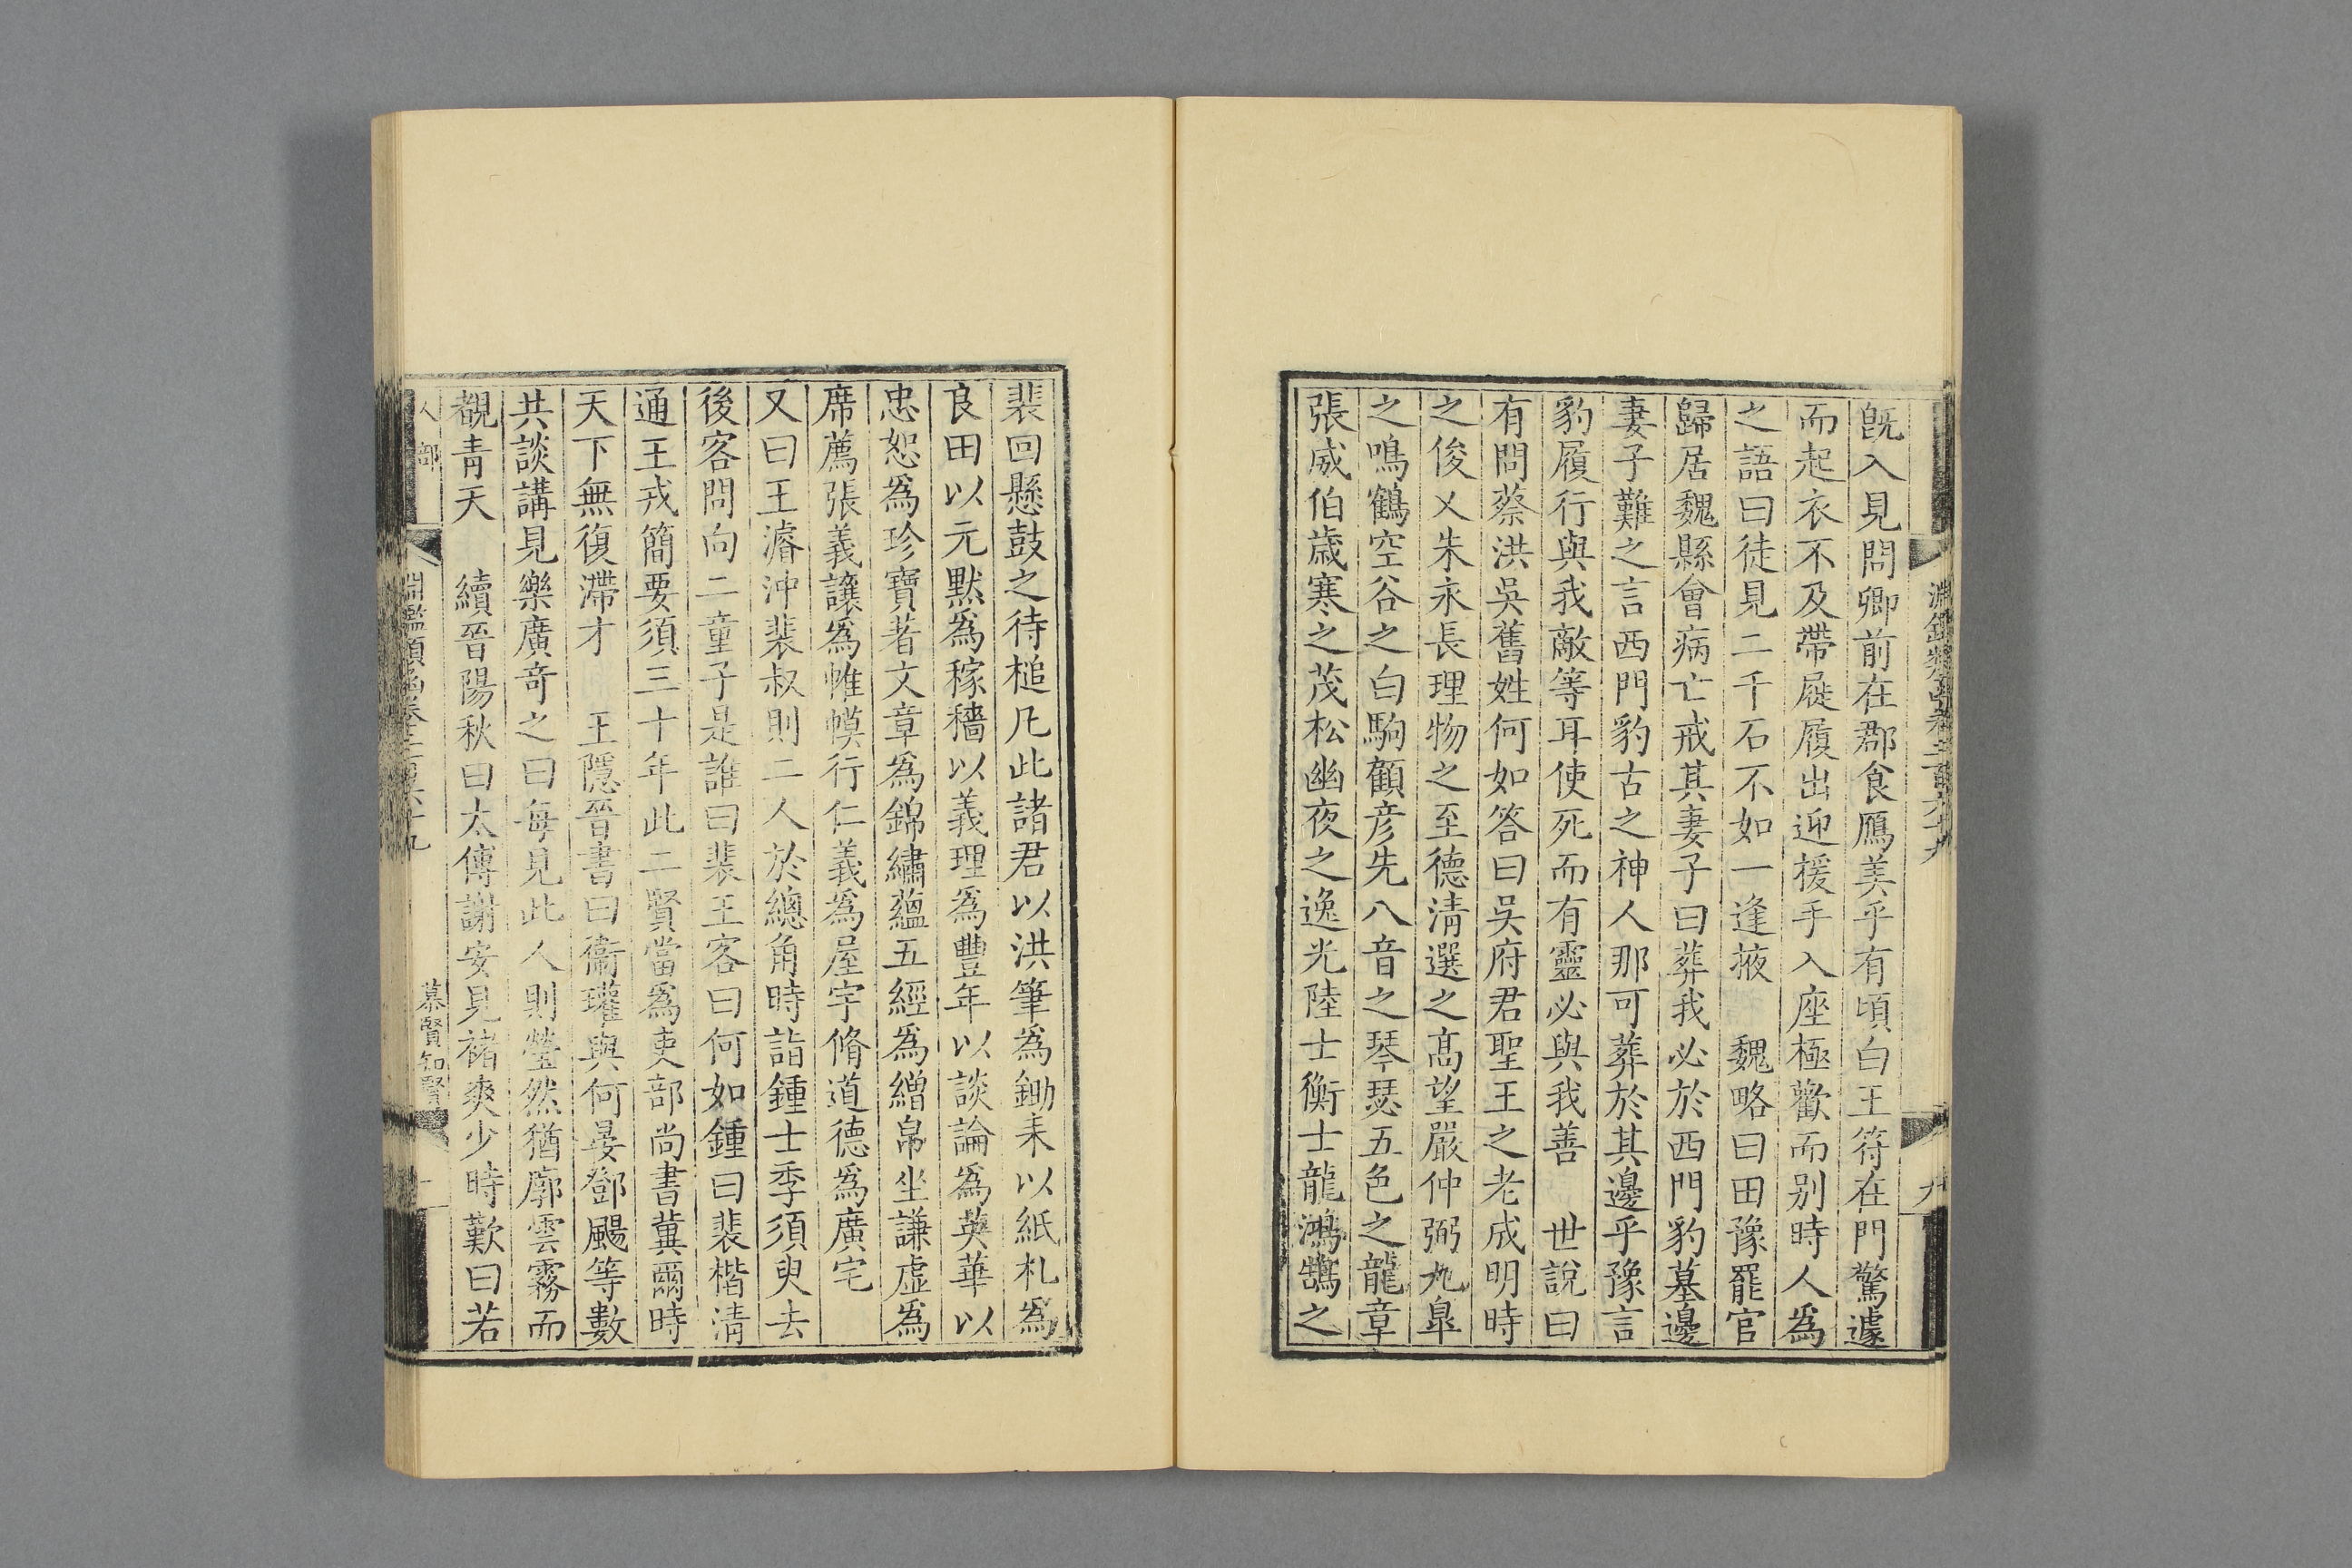 旣入見問卿前在郡食鴈美乎有頃白王符在門驚遽
而起衣不及帶屣履出迎援手入座極歡而别時人爲
之語曰徒見二千石不如一逢掖　魏略曰田豫罷官
歸居魏縣會病亡戒其妻子曰葬我必於西門豹墓邊
妻子難之言西門豹古之神人那可葬於其邊乎豫言
豹履行與我敵等耳使死而有靈必與我善　世說曰
有問蔡洪吳舊姓何如答曰吳府君聖王之老成明時
之俊乂朱永長理物之至德淸選之高望嚴仲弼九臯
之鳴鶴空谷之白駒顧彦先八音之琴瑟五色之龍章
張威伯歲寒之茂松幽夜之逸光陸士衡士龍鴻鵠之
裴回懸鼓之待槌凡此諸君以洪筆爲鋤耒以紙札爲
良田以元默爲稼穡以義理爲豐年以談論爲英華以
忠恕爲珍寶著文章爲錦繡蘊五經爲繒帛坐謙虛爲
席薦張義讓爲帷幙行仁義爲屋宇脩道德爲廣宅
又曰王濬沖裴叔則二人於總角時詣鍾士季須臾去
後客問向二童子是誰曰裴王客曰何如鍾曰裴楷淸
通王戎簡要須三十年此二賢當爲吏部尚書冀爾時
天下無復滯才　王隱晉書曰衞瓘與何晏鄧颺等數
共談講見樂廣奇之曰每見此人則瑩然猶廓雲霧而
覩靑天　續晉陽秋曰太傅謝安見褚爽少時歎曰若
人部　淵鑑類函卷二百六十九　慕賢知賢